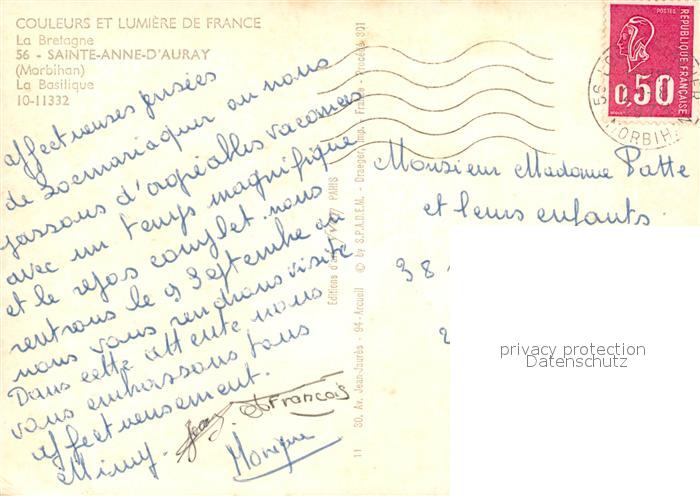 COULEURS ET LUMIÈRE DE FRANCE
La Bretagne
56 - SAINTE-ANNE-D'AURAY
(Morbihan)
La Basilique
10-11332
affectueuses pensées
de Locmariaquer ou nous
passons d'agréables vacances
avec un temps magnifique
et le repos complet. nous
rentrons le 9 Septembre et
nous vous rendrons visite
Dans cette attente nous
vous embrassons tous
affectueusement.
Mimy. Jean et François
Monique
Editions d'art PARIS
11 30, Av. Jean-Jaurès - 94-Arcueil © by S.P.A.D.E.M. - Draeger, Imp. France - Procédé 301
POSTES
REPUBLIQUE FRANÇAISE
0,50
56
MORBIHAN
Monsieur Madame Patte
et leurs enfants.
38
privacy protection
Datenschutz